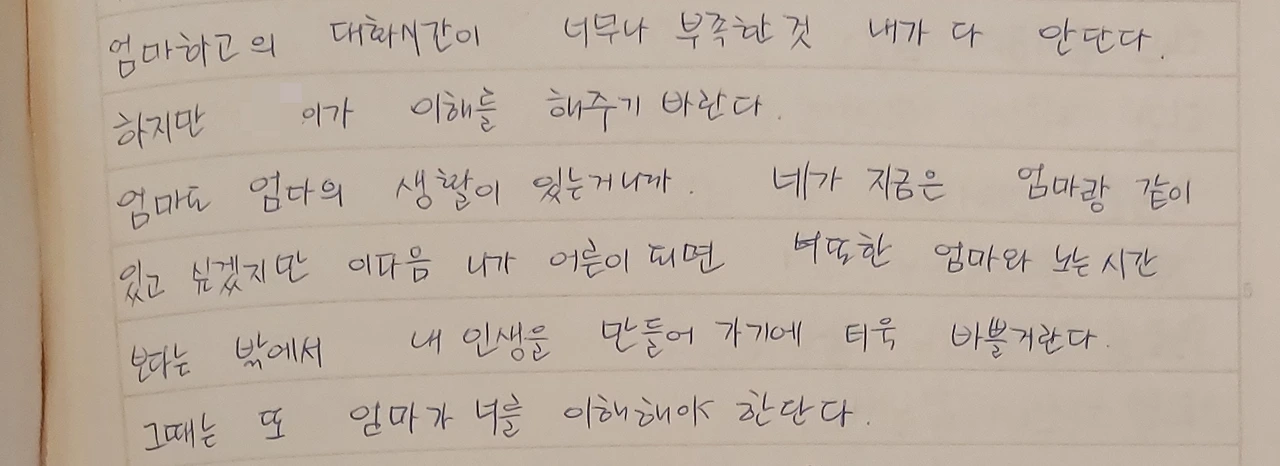 엄마하고의 대화시간이 너무나 부족한것 내가 다 안단다.
하지만 이가 이해를 해주기 바란다.
엄마도 엄마의 생활이 있는거니까. 네가 지금은 엄마랑 같이
있고 싶겠지만 이다음 니가 어른이 되면 너또한 엄마와 노는시간
보다는 밖에서 내 인생을 만들어 가기에 더욱 바쁠거란다.
그때는 또 엄마가 너를 이해해야 한단다.